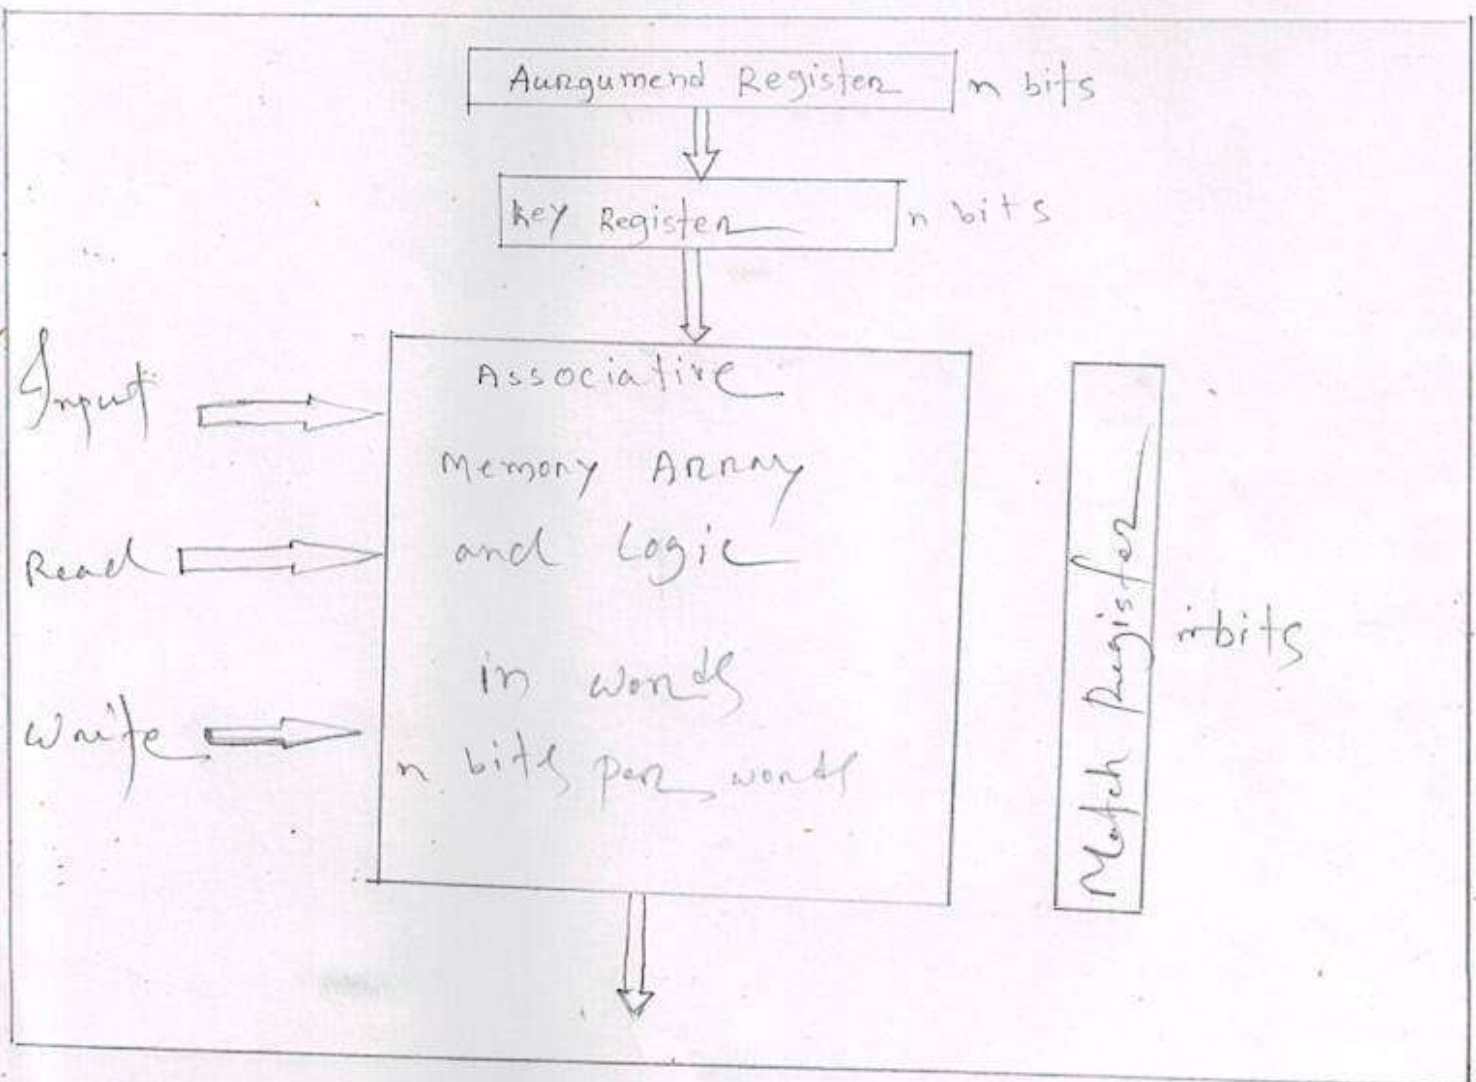 Aurgumend Register n bits
key Register n bits
Input
Read
Write
Associative
Memory Array
and Logic
in words
n bits per words
Match Register
m bits